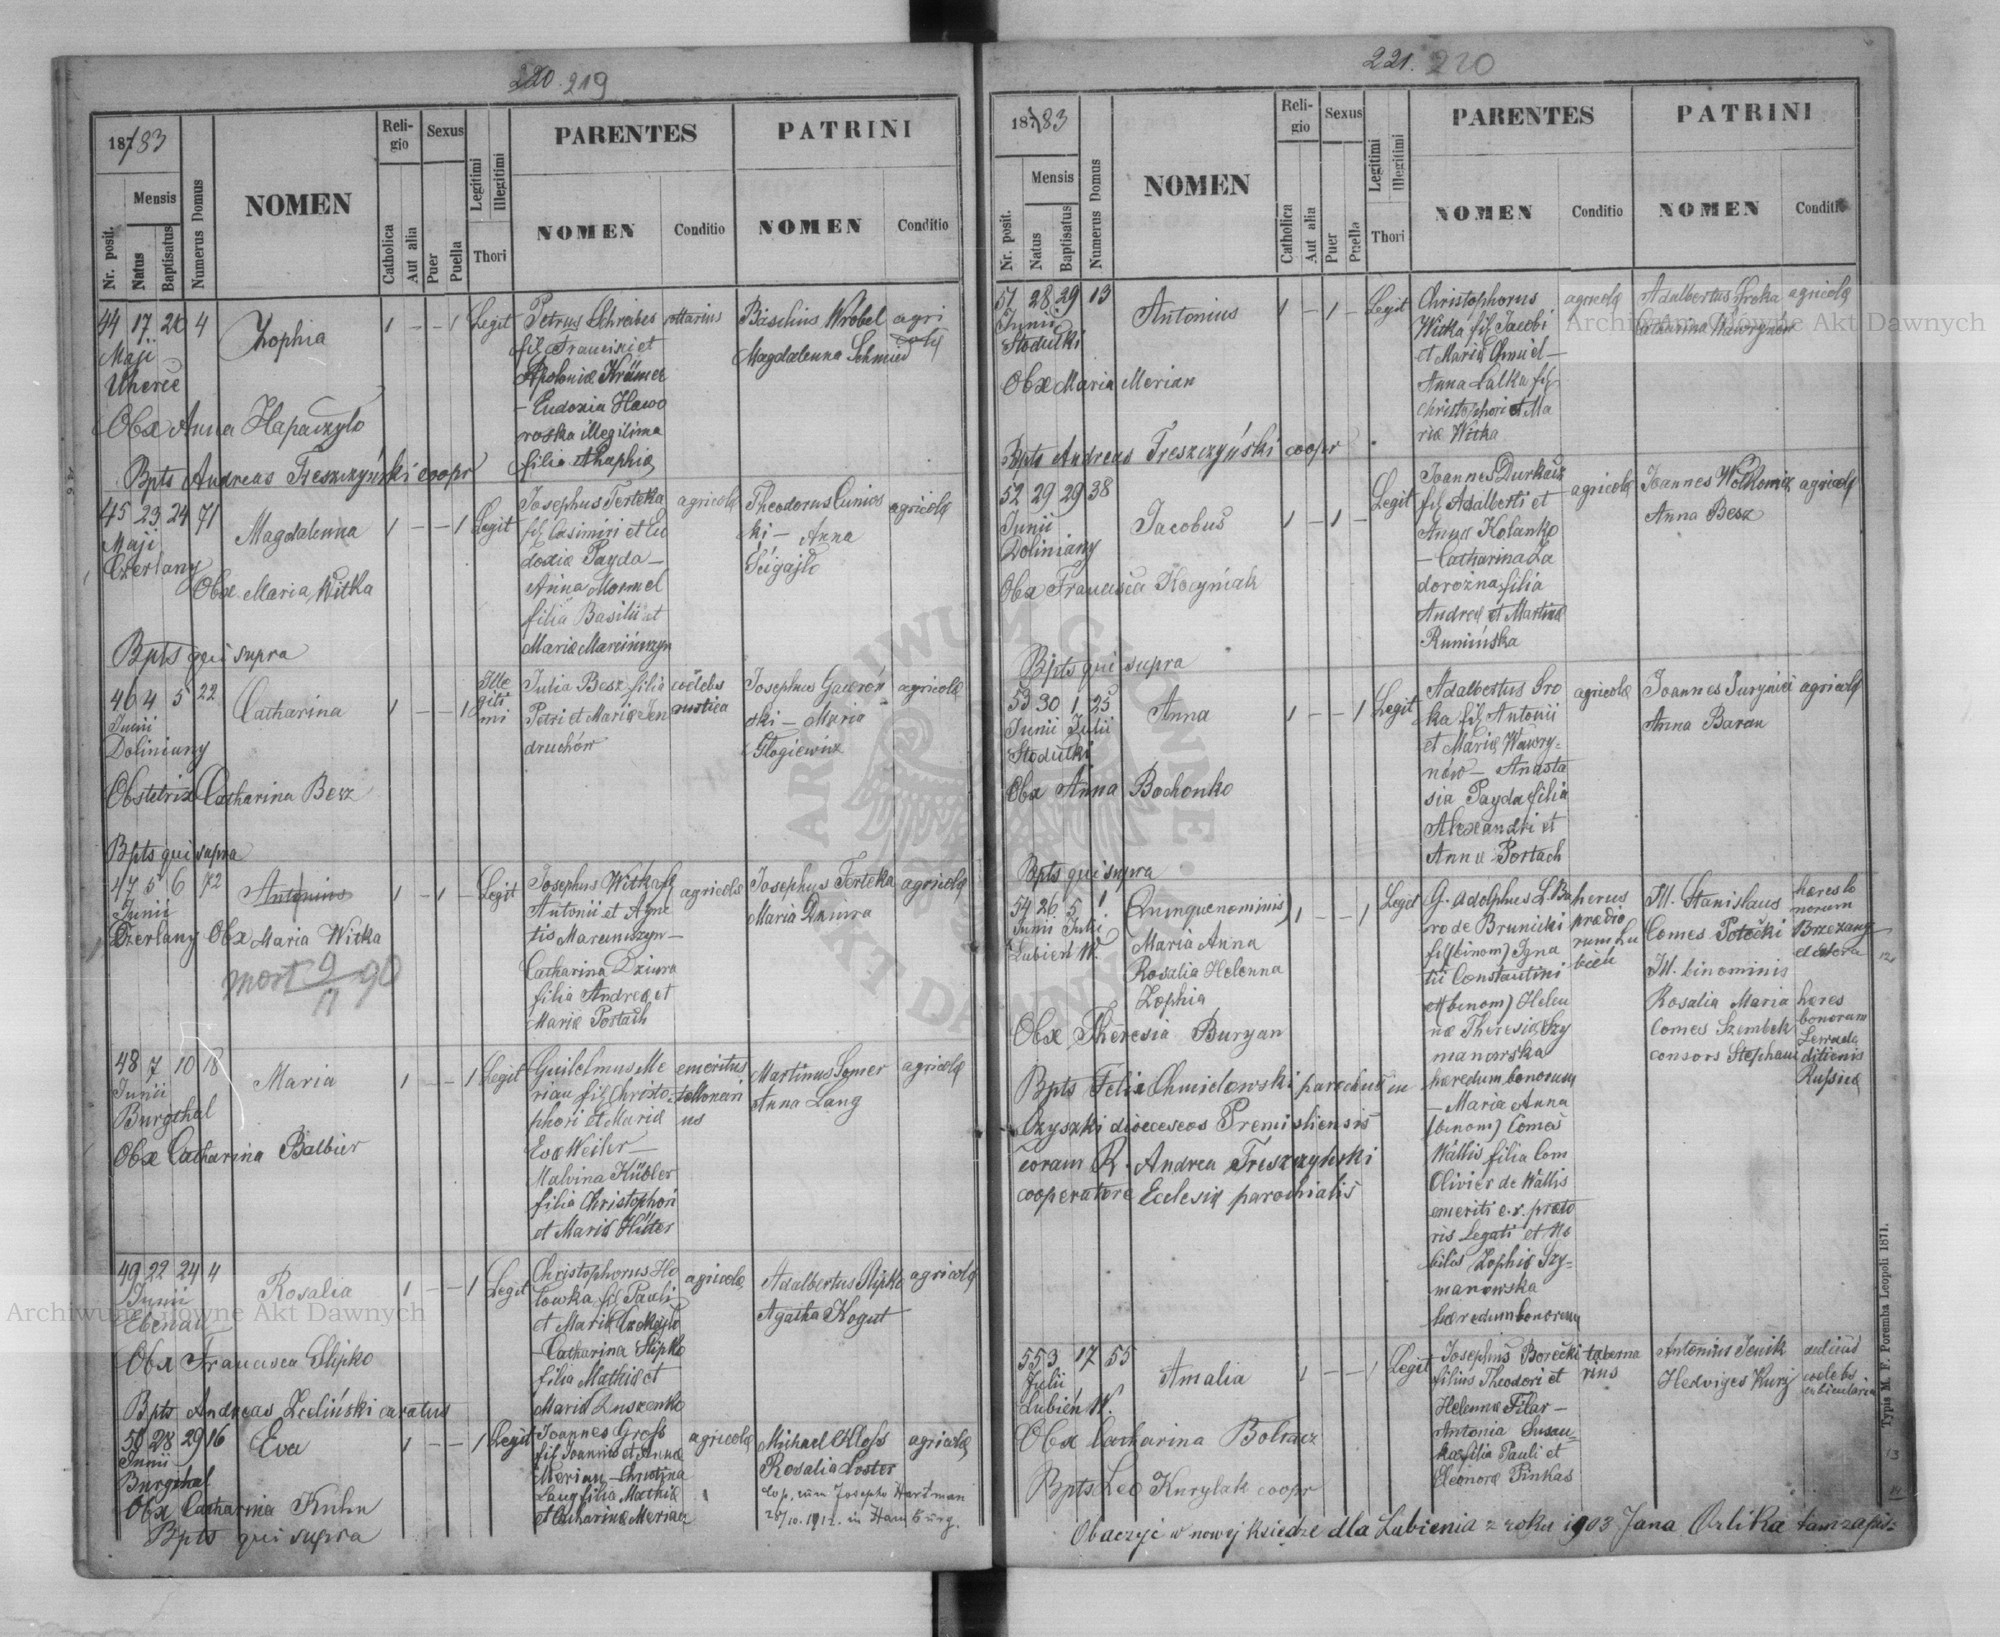 220. 219
1883
Nr. posit.
Mensis
Natus
Baptisatus
Numerus Domus
NOMEN
Religio
Catholica
Aut alia
Sexus
Puer
Puella
Legitimi
Illegitimi
Thori
PARENTES
NOMEN
Conditio
PATRINI
NOMEN
Conditio
44 17 20 4
Maji
Uherce
Zophia
1 - - 1 Legit
Petrus Schreiber
fil Francisci et
Apoloniæ Krämer
- Eudoxia Hawo
roska illegitima
filia Ahaphiæ
Basilius Wróbel
Magdalenna Schmied
agri
colæ
Obx Anna Hapaczylo
Bpts Andreas Treszczyński coopr
45 23 24 71
Maji
Czerlany
Magdalenna
1 - - 1 Legit
Josephus Terteka
fil Casimiri et Eu
doxiæ Payda -
Anna Mormel
filia Basilii et
Mariæ Marcińiszyn
agricolæ
Theodorus Cunios
ki - Anna
Ścigajlo
agricolæ
Obx Maria Witka
Bpts qui supra
46 4 5 22
Junii
Doliniany
Catharina
1 - - 1
Ille
giti
mi
Julia Besz filia
Petri et Mariæ Jen
druchów
coelebs
rustica
Josephus Gawroń
ski - Maria
Głogiewicz
agricolæ
Obstetrix Catharina Besz
Bpts qui supra
47 5 6 72
Junii
Czerlany
Antonius
1 - 1 - Legit
Josephus Witka fil
Antonii et Agne
tis Marciniszyn -
Catharina Dziura
filia Andreæ et
Mariæ Portach
agricolæ
Josephus Terteka
Maria Dziura
agricolæ
Obx Maria Witka
mort 9/17 90
48 7 10 18
Junii
Burgthal
Maria
1 - - 1 Legit
Guilelmus Me
rian fil Christo
phori et Mariæ
Eva Weiler -
Malvina Kübler
filia Christophori
et Mariæ Hüter
emeritus
Martinus Somer
Anna Lang
agricolæ
Obx Catharina Balbier
49 22 24 4
Junii
Ebenau
Rosalia
1 - - 1 Legit
Christophorus Ho
lowka fil Pauli
- Catharina Slipko
filia Mathiæ et
agricolæ
Adalbertus Slipko
Agatha Kogut
agricolæ
Obx Francisca Slipko
Bpts Andreas Zieliński curatus
50 28 29 16
Junii
Burgthal
Eva
1 - - 1 Legit
Joannes Gross
fil Joannis et Annæ
Merian - Christina
Lang filia Mathiæ
et Catharinæ Merian
agricolæ
Michael Kloss
Rosalia Koster
cop. cum Josepho Hartman
28/10. 1912. in Hamburg.
agricolæ
Obx Catharina Kuhn
Bpts qui supra
221. 220
1883
Nr. posit.
Mensis
Natus
Baptisatus
Numerus Domus
NOMEN
Religio
Catholica
Aut alia
Sexus
Puer
Puella
Legitimi
Illegitimi
Thori
PARENTES
NOMEN
Conditio
PATRINI
NOMEN
Conditio
51 28 29 13
Junii
Stodulki
Antonius
1 - 1 - Legit
Christophorus
Witka fil Jacobi
et Mariæ Chmiel -
Anna Lalka fil
Christophori et Ma
riæ Witka
agricolæ
Adalbertus Sroka
Catharina Wawrynów
agricolæ
Obx Maria Merian
Bpts Andreas Treszczyński coopr
52 29 29 38
Junii
Doliniany
Jacobus
1 - 1 - Legit
Joannes Durkacz
fil Adalberti et
Annæ Kolanko
- Catharina Za
dorożna filia
Andreæ et Martinæ
Rumińska
agricolæ
Joannes Wolkowicz
Anna Besz
agricolæ
Obx Francisca Kocyniak
Bpts qui supra
53 30 1 25
Junii Julii
Stodulki
Anna
1 - - 1 Legit
Adalbertus Sro
ka fil Antonii
et Mariæ Wawry-
nów - Anasta
sia Payda filia
Alexandri et
Annæ Portach
agricolæ
Joannes Juryniec
Anna Baran
agricolæ
Obx Anna Bochonko
Bpts qui supra
54 26 5 1
Junii Julii
Lubień W.
Quinquenominis
Maria Anna
Rosalia Helenna
Zophia
1 - - 1 Legit
G. Adolphus L. Ba
ro de Brunicki
fil (binom) Igna
tii Constantini
et (binom) Helen
næ Theresiæ Szy
manowska
hæredum bonorum
- Maria Anna
(binom) Comes
Wallis filia Com
Olivier de Wallis
emeriti c.r. præto
ris Legati et No
bilis Zophiæ Szy-
manowska
hæredum bonorum
heres
prædio
rum Lu
bień
Ill. Stanislaus
Comes Potocki
Ill. binominis
Rosalia Maria
Comes Szembek
consors Stephani
hæres bo
norum
Brzezany
et cætera
heres
bonorum
ditionis
Russicæ
Obx Theresia Buryan
Bpts Felix Chmielowski parochus in
Czyszki dioeceseos Premisliensis
coram R. Andrea Treszczyński
cooperatore Ecclesiæ parochialis
55 3 17 55
Julii
Lubień W.
Amalia
1 - - 1 Legit
Josephus Borecki
filius Theodori et
Helennæ Filar -
Antonia Susau-
ka filia Pauli et
Eleonoræ Pinkas
taberna
rius
Antonius Jenik
Hedviges Kurz
coelebs
cubicularia
Obx Catharina Bolracz
Bpts Leo Kurylak coopr
Obaczyć w nowej księdze dla Lubienia z roku 1903 Jana Orlika tam zapis:
Typis M. F. Poremba Leopoli 1871.
Archiwum Główne Akt Dawnych
Archiwum Główne Akt Dawnych
ARCHIWUM GŁÓWNE AKT DAWNYCH